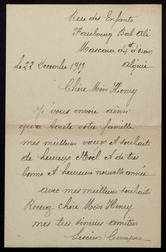 Rue des Enfants
Faubourg Bab Ali
Mascara Dt d'Oran
Algérie
le 22 Decembre 1919
Chère Miss Henry
Je vous envoie ainsi
qu'à toute votre famille
mes meilleurs vœux et souhaits
de heureux Noël et de très
bonne et heureuse nouvelle année
avec mes meilleurs souhaits
Recevez chère Miss Henry
mes très sincères amitiés
Lucien